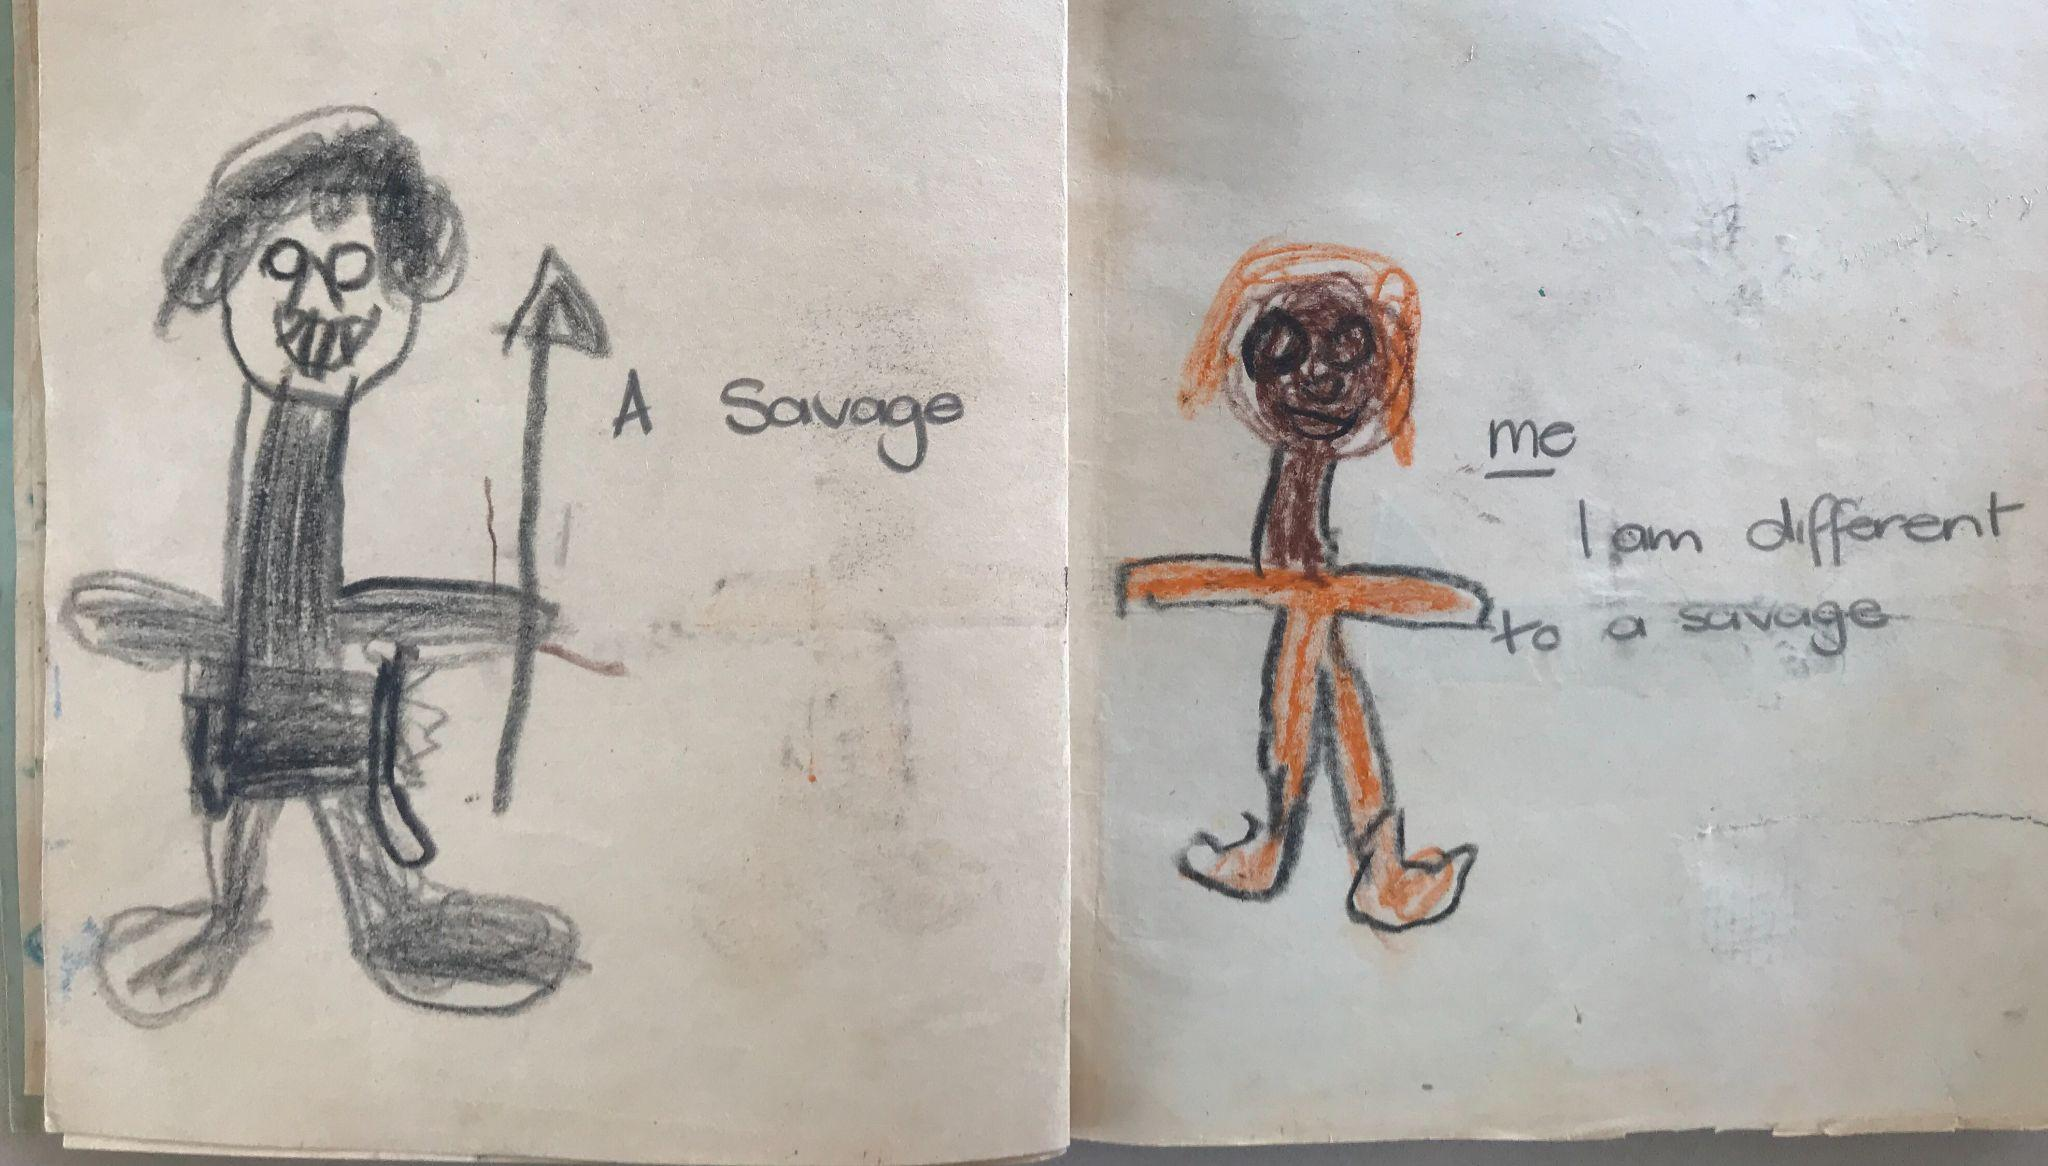 A Savage
me
I am different
to a savage